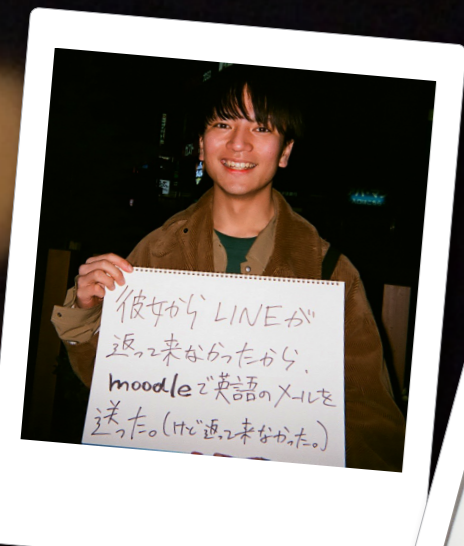 彼女から LINEが
返って来なかったから、
moodleで英語のメールを
送った。(けど返って来なかった。)